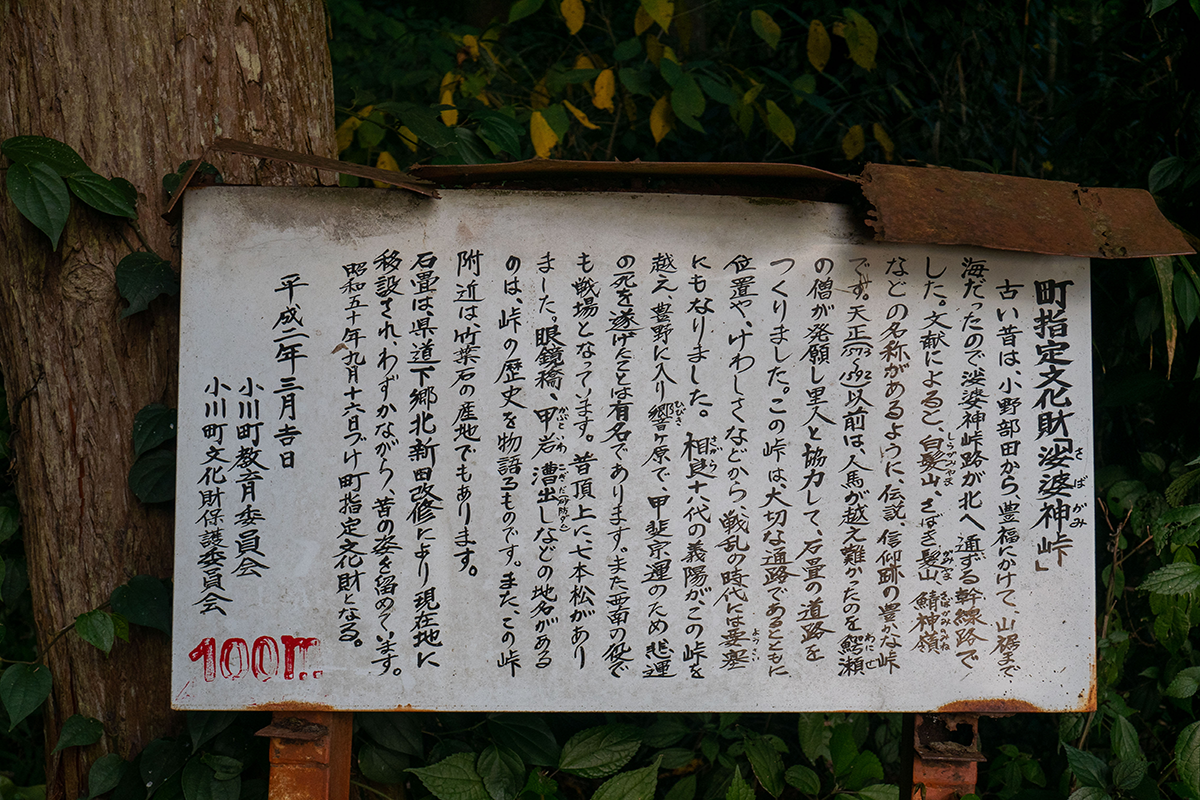 町指定文化財「娑婆神峠」
さばがみ
古い昔は、小野部田から、豊福にかけて、山裾まで
海だったので娑婆神峠路が北へ通ずる幹線路で
した。文献によると、白髪山、さばき髪山、鯖神嶺
しらがみやま
がみやま
さばがみみね
などの名称があるように、伝説、信仰跡の豊かな峠
です。天正(1573~1592)以前は、人馬が越え難かったのを鰐瀬
わにせ
の僧が発願し里人と協力して、石畳の道路を
つくりました。この峠は、大切な通路であるとともに
位置や、けわしさなどから、戦乱の時代には要塞
ようさい
にもなりました。相良十八代の義陽が、この峠を
さがら
越え、豊野に入り響ヶ原で、甲斐宗運のため悲運
ひびき
の死を遂げたことは有名であります。また西南の役で
も戦場となっています。昔頂上に、七本松があり
ました。眼鏡橋、甲岩、漕出しなどの地名がある
かぶといわ
こぎだ
のは、峠の歴史を物語るものです。また、この峠
附近は、竹葉石の産地でもあります。
石畳は、県道下郷北新田改修により現在地に
移設され、わずかながら、昔の姿を留めています。
昭和五十年九月十六日づけ町指定文化財になる。
平成二年三月吉日
小川町教育委員会
小川町文化財保護委員会
100